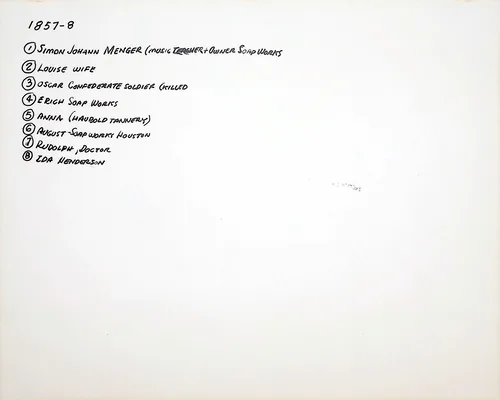 1857-8
① SIMON JOHANN MENGER (MUSIC TEACHER + OWNER SOAP WORKS
② LOUISE WIFE
③ OSCAR CONFEDERATE SOLDIER (KILLED
④ ERICH SOAP WORKS
⑤ ANNA (HAUBOLD TANNERY)
⑥ AUGUST SOAP WORKS HOUSTON
⑦ RUDOLPH, DOCTOR
⑧ IDA HENDERSON